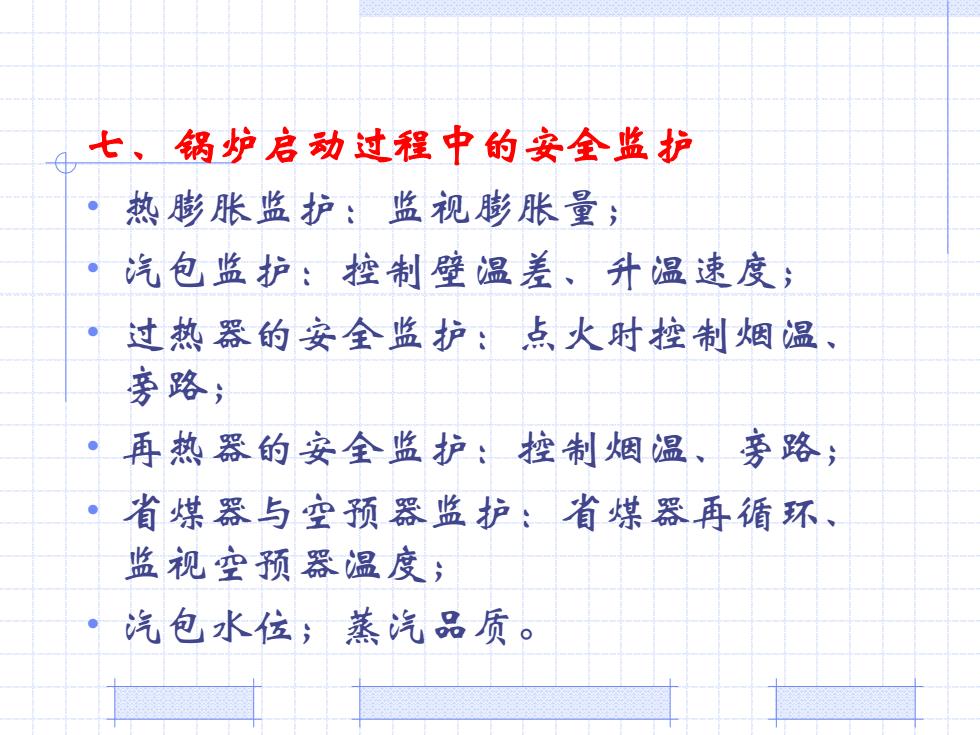 七、锅炉启动过程中的安全监护
• 热膨胀监护：监视膨胀量；
• 汽包监护：控制壁温差、升温速度；
• 过热器的安全监护：点火时控制烟温、
旁路；
• 再热器的安全监护：控制烟温、旁路；
• 省煤器与空预器监护：省煤器再循环、
监视空预器温度；
• 汽包水位；蒸汽品质。